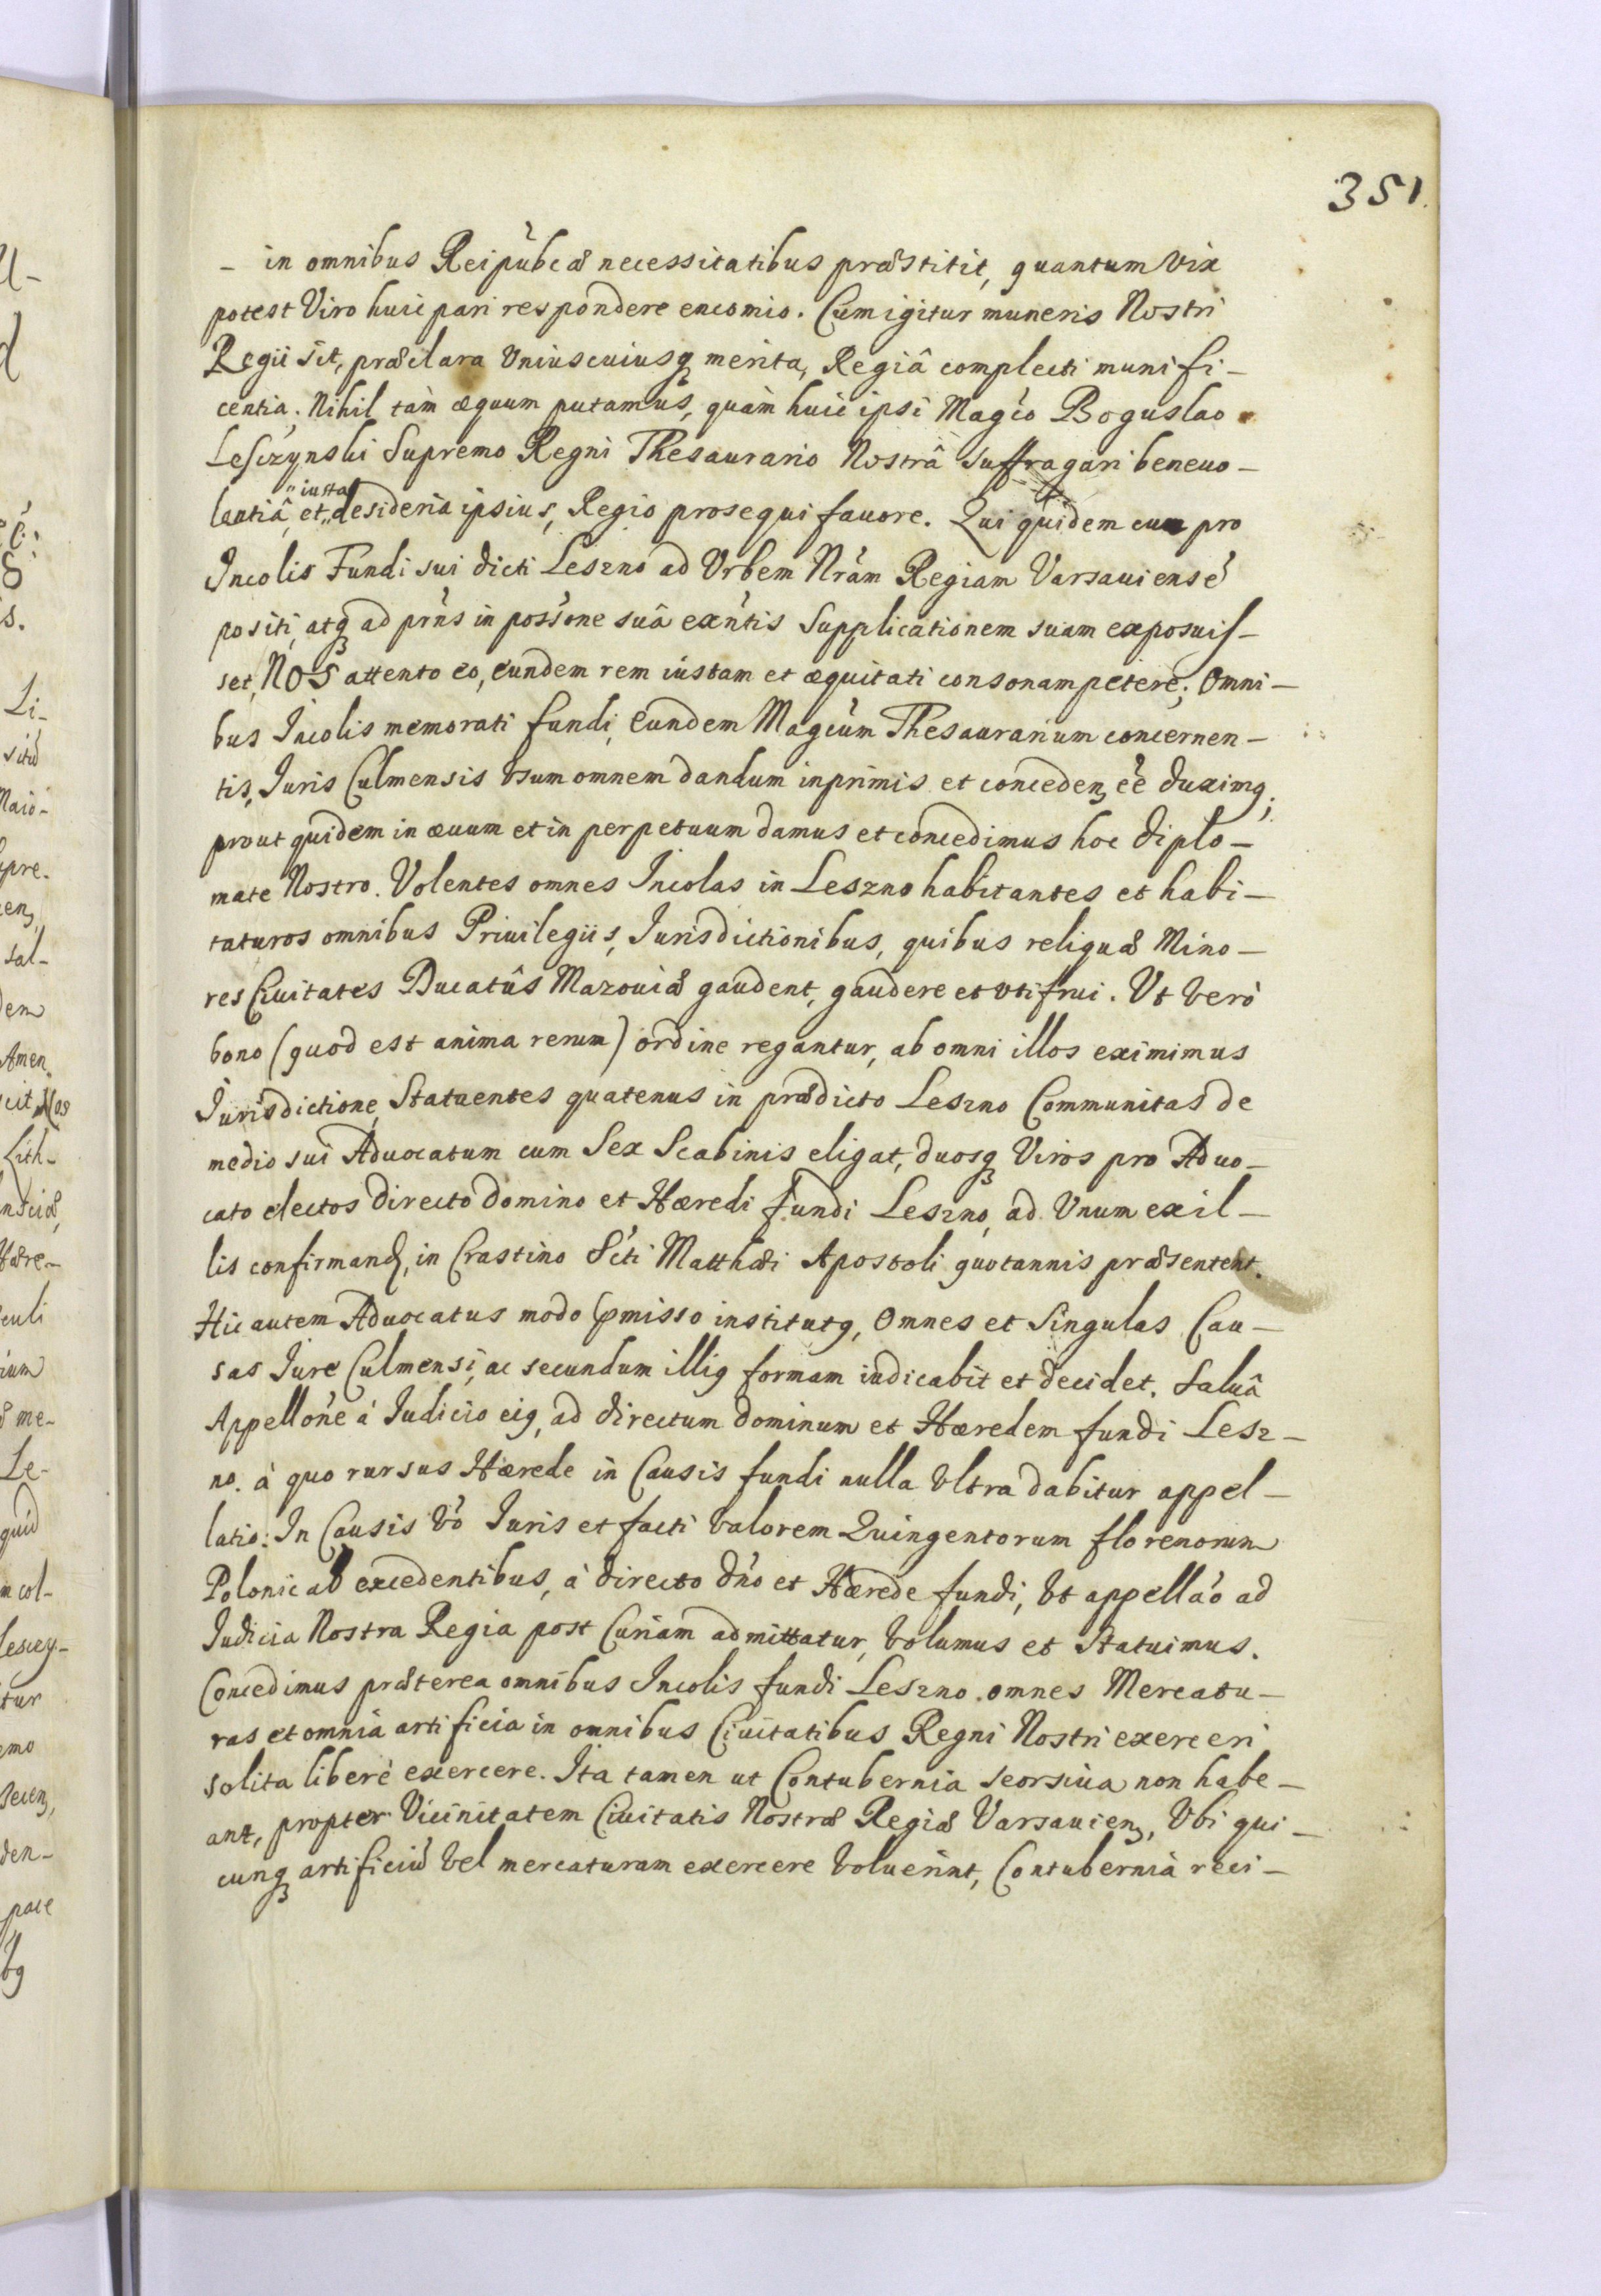 351.
- in omnibus Reipúbcæ necessitatibus præstitit, quantum vix
potest Viro huic pari respondere encomio. Cum igitur muneris Nostri
Regii sit, præclara Uniuscuiusq merita, Regiâ complecti munifi-
centia. Nihil tàm æquum putamus, quàm huic ipsi Magco Boguslao
Lesczynski Supremo Regni Thesaurario Nostrâ suffragari beneuo-
iusta
lentiâ, et desideria ipsius, Regio prosequi fauore. Qui quidem cum pro
Incolis Fundi sui dicti Leszno ad Vrbem Nram Regiam Varsauiensẽ
positi, atq ad prns in possone suâ exntis Supplicationem suam exposuis-
set, NOS attento eo, eundem rem iustam et æquitati consonam petere; Omni-
bus Incolis memorati fundi, eundem Magcum Thesaurarium concernen-
tis, Iuris Culmensis vsum omnem dandum inprimis et conceden eẽ duximq;
prout quidem in æuum et in perpetuum damus et concedimus hoc diplo-
mate Nostro. Volentes omnes Incolas in Leszno habitantes et habi-
taturos omnibus Priuilegiis, Iurisdictionibus, quibus reliquæ Mino-
res Ciuitates Ducatûs Mazouiæ gaudent, gaudere et vti frui. Vt verò
bono (quod est anima rerum) ordine regantur, ab omni illos eximimus
Iurisdictione, Statuentes quatenus in prædicto Leszno Communitas de
medio sui Aduocatum cum Sex Scabinis eligat, duosq Viros pro Aduo-
cato electos directo domino et Hæredi fundi Leszno, ad Vnum ex il-
lis confirmand, in Crastino Scti Matthæi Apostoli quotannis præsentent.
Hic autem Aduocatus modo pmisso institutq, Omnes et Singulas Cau-
sas Iure Culmensi, ac secundum illiq formam iudicabit et decidet. Saluâ
Appellone à Iudicio eiq, ad directum dominum et Hæredem fundi Lesz-
no. à quo rursus Hærede in Causis fundi nulla vltra dabitur appel-
latio: In Causis vo Iuris et facti valorem Quingentorum florenorum
Polonicał excedentibus, à directo dno et Hærede fundi, vt appellao ad
Iudicia Nostra Regia post Curiam admittatur, volumus et Statuimus.
Concedimus præterea omnibus Incolis fundi Leszno omnes Mercatu-
ras et omnia artificia in omnibus Ciuitatibus Regni Nostri exerceri
solita liberè exercere. Ita tamen ut Contubernia seorsiua non habe-
ant, propter Vicinitatem Ciuitatis Nostræ Regiæ Varsauien, Vbi qui-
cunq artificiũ vel mercaturam exercere voluerint, Contubernia reci-